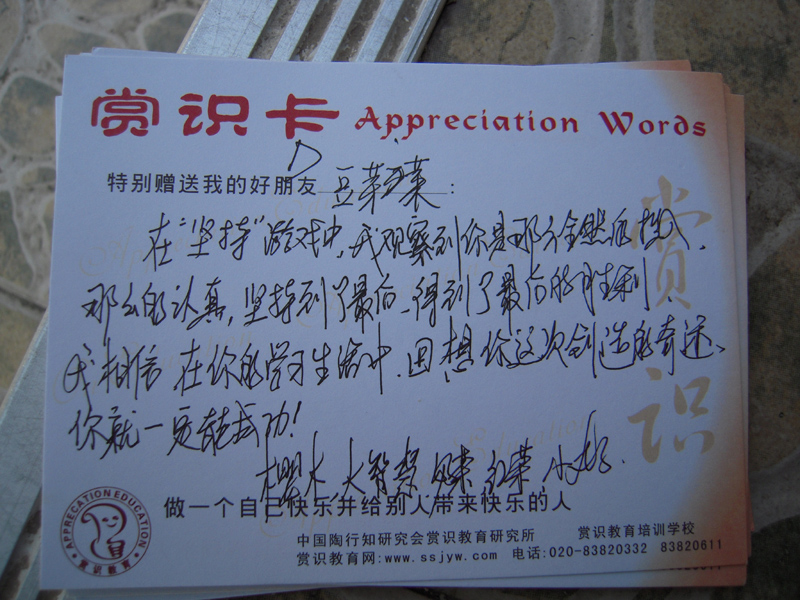 赏识卡 Appreciation Words
特别赠送我的好朋友 豆莱 :
在“坚持”游戏中，我观察到你是那么全然的投入，
那么的认真，坚持到了最后，得到了最后的胜利。
我相信 在你的学习生活中，回想你这次创造的奇迹、
你就一定能成功！
大智慧 小
做一个自己快乐并给别人带来快乐的人
中国陶行知研究会赏识教育研究所 赏识教育培训学校
赏识教育网:www.ssjyw.com 电话:020-83820332 83820611
APPRECATION EDUCATION
赏识教育
赏识